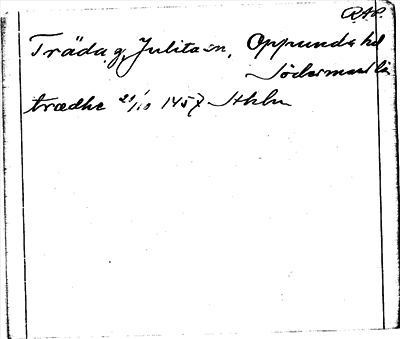 RAP.
Träda, g, Julita sn, Oppunda hd
Södermanl län
trædhe 21/10 1457 Sthlm